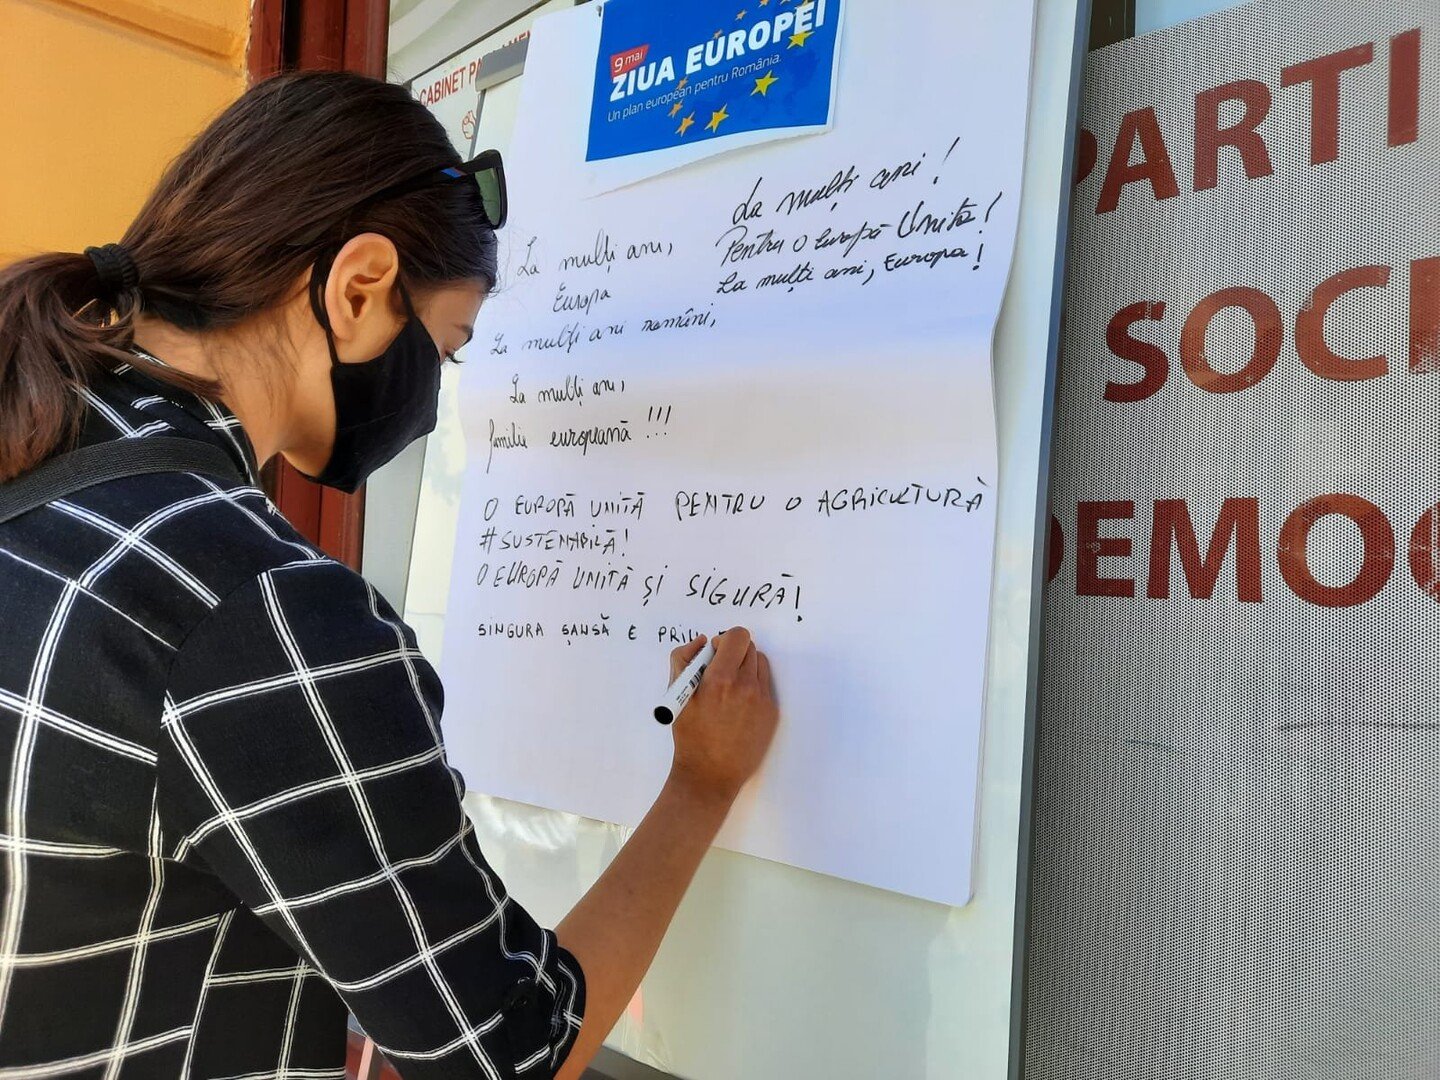 CABINET
9 mai
ZIUA EUROPEI
Un plan european pentru România.
La mulți ani!
Pentru o Europă Unită!
La mulți ani, Europa!
La mulți ani,
Europa
La mulți ani români,
La mulți ani,
familie europeană !!!
O EUROPĂ UNITĂ PENTRU O AGRICULTURĂ
#SUSTENABILĂ!
O EUROPĂ UNITĂ ȘI SIGURĂ!
SINGURA ȘANSĂ E
PARTI
SOCI
DEMOC